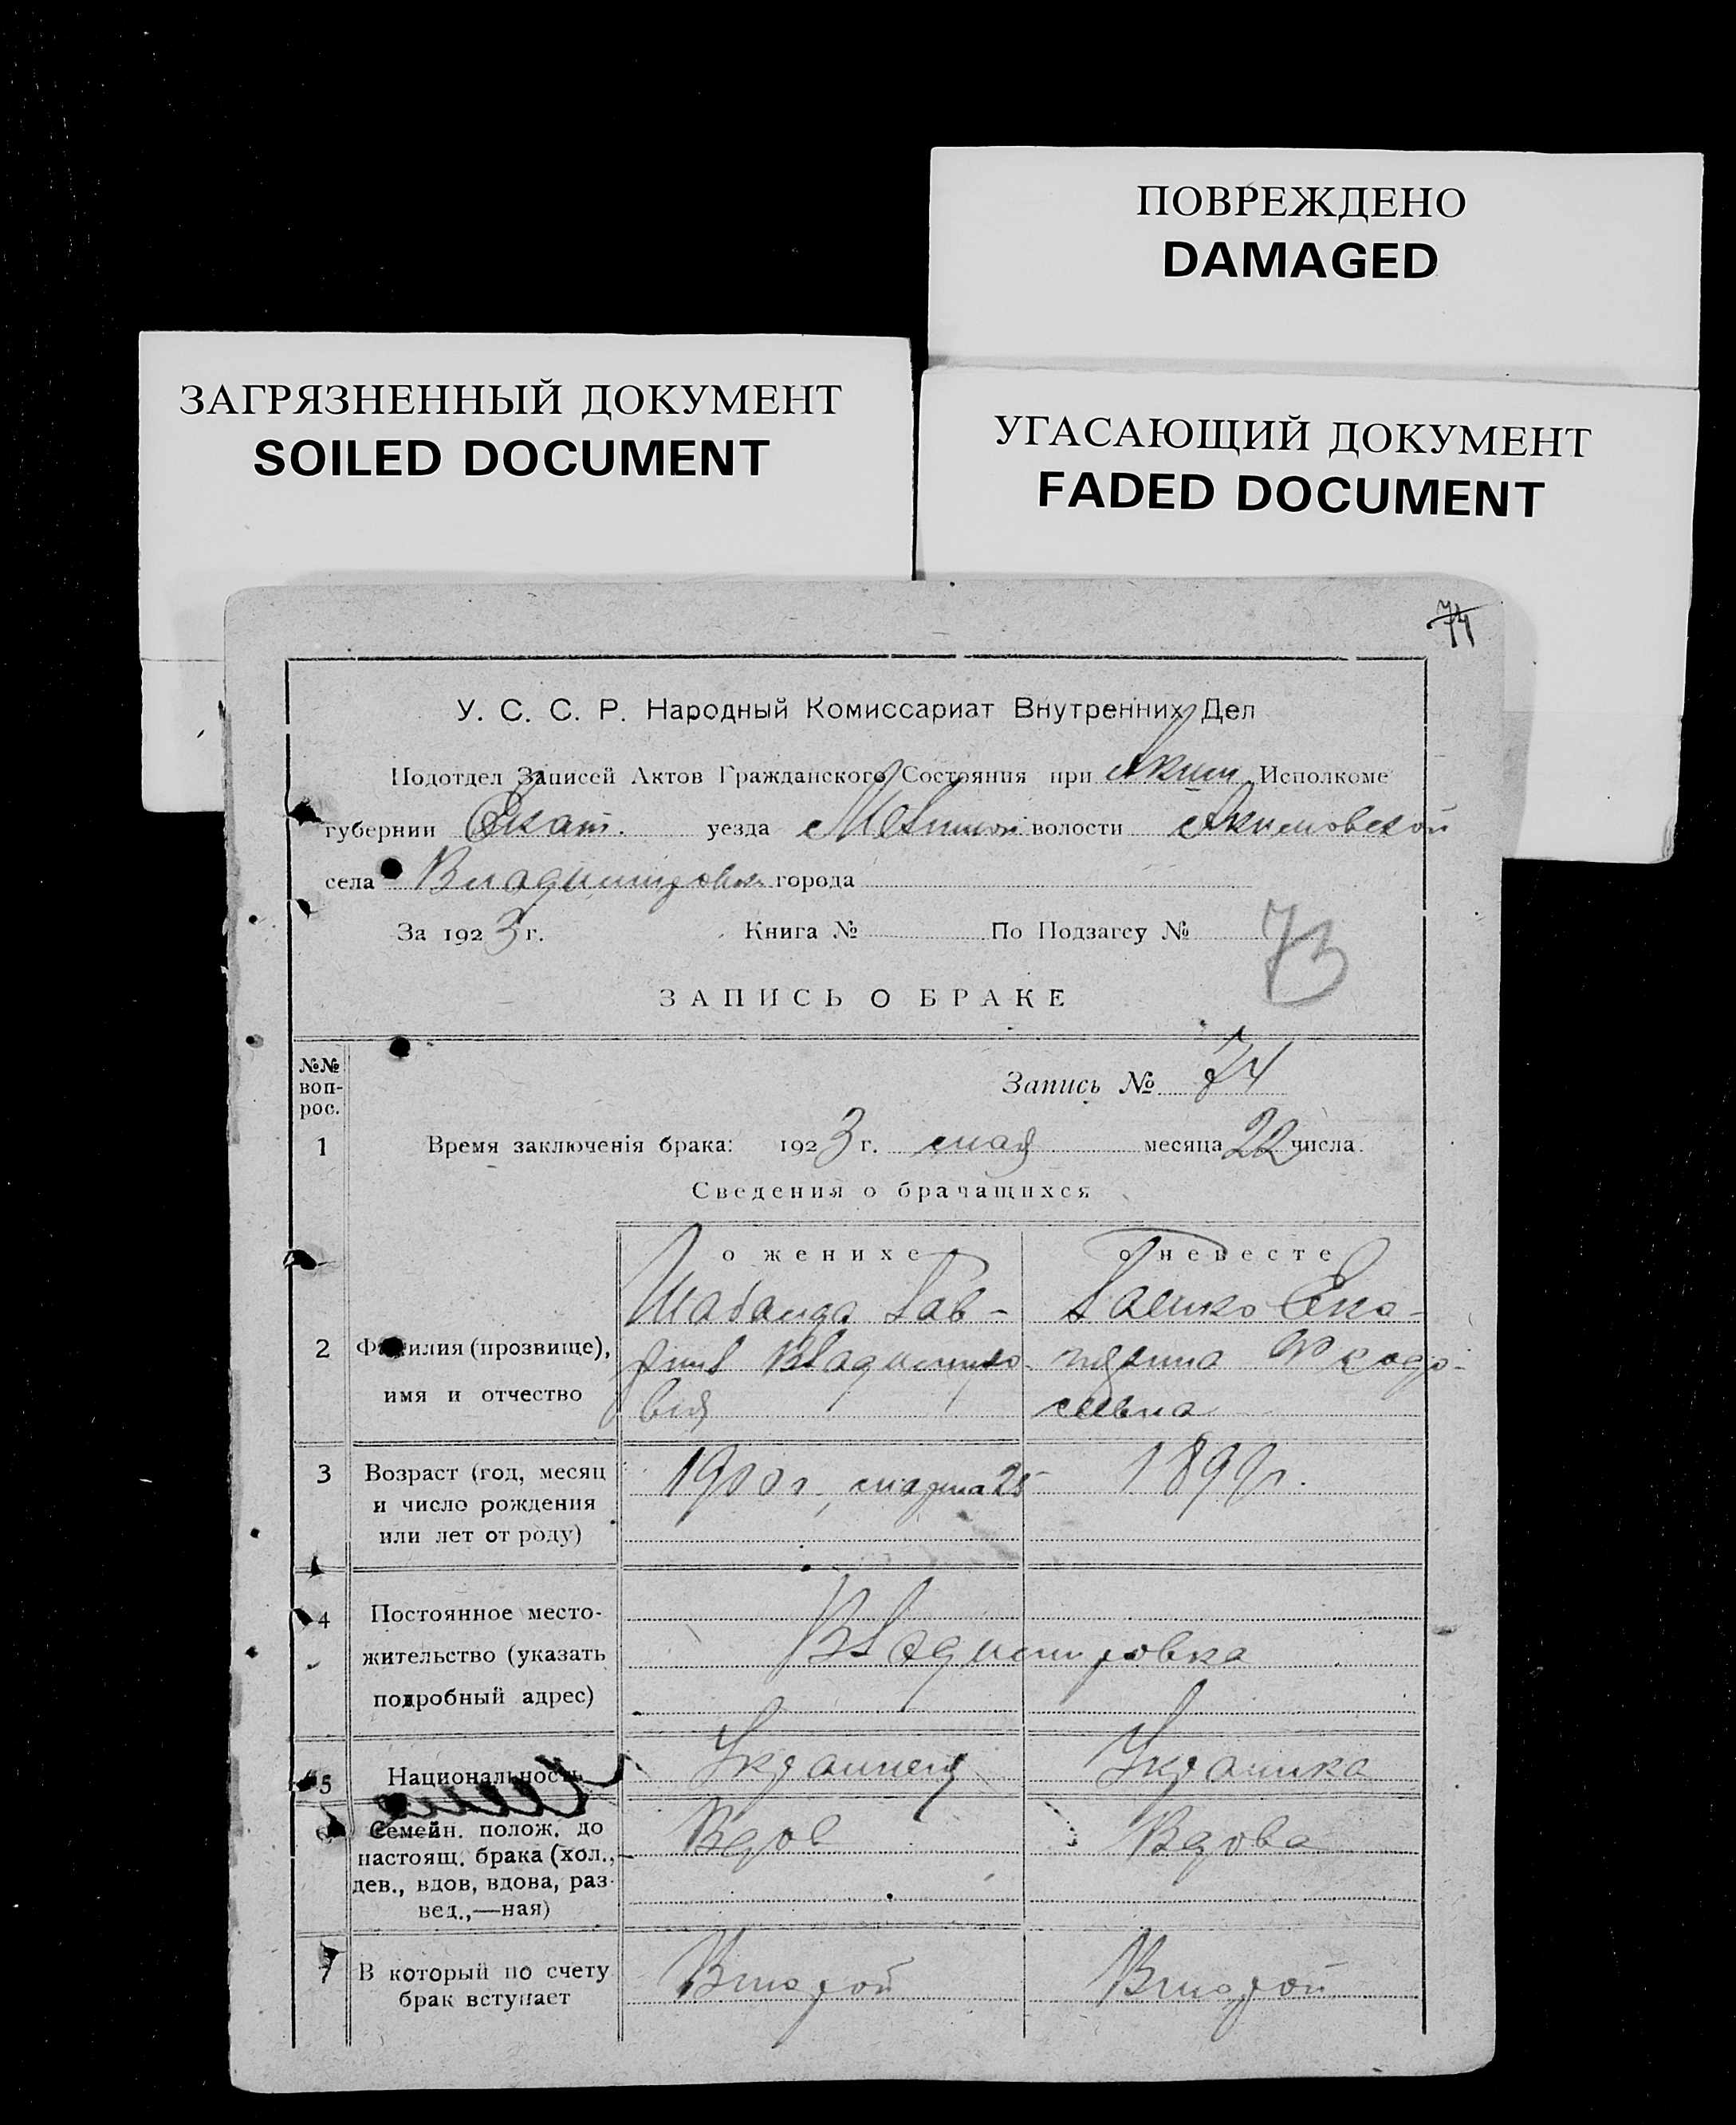 ПОВРЕЖДЕНО
DAMAGED
ЗАГРЯЗНЕННЫЙ ДОКУМЕНТ
SOILED DOCUMENT
УГАСАЮЩИЙ ДОКУМЕНТ
FADED DOCUMENT
74
У. С. С. Р. Народный Комиссариат Внутренних Дел
Подотдел Записей Актов Гражданского Состояния при Аким Исполкоме
губернии Екат. уезда волости Акимовской
села Владимировки города
За 1923 г. Книга № По Подзагсу № 73
ЗАПИСЬ О БРАКЕ
№№ воп-рос.
Запись № 74
1 Время заключенія брака: 1923 г. мая месяца 22 числа.
Сведения о брачащихся
о женихе о невесте
Шабанда Гав- Галико Ека-
2 Фамилия (прозвище), риил Владимиро- терина Феодо-
имя и отчество вич сиевна
3 Возраст (год, месяц 1900 г., марта 25 1899 г.
и число рождения
или лет от роду)
4 Постоянное место-
жительство (указать Владимировка
подробный адрес)
5 Национальность Украинец Украинка
6 Семейн. полож. до Вдов Вдова
настоящ. брака (хол.,
дев., вдов, вдова, раз-
вед.,—ная)
7 В который по счету Второй Второй
брак вступает